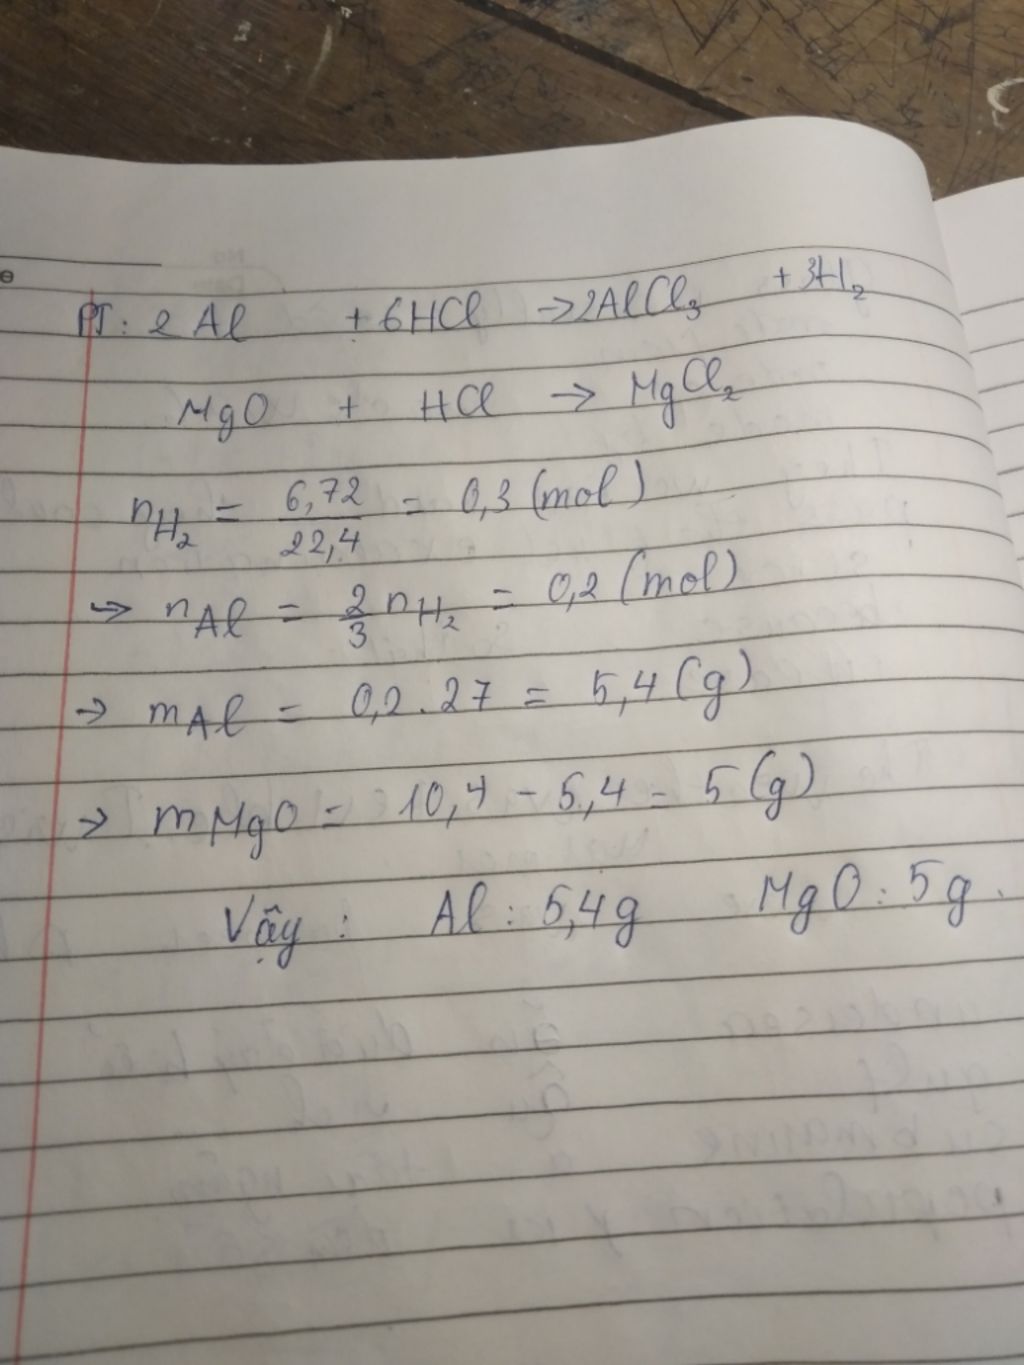 PT: 2 Al + 6HCl → 2AlCl₃ + 3H₂
MgO + HCl → MgCl₂
nH₂ = 6,72 / 22,4 = 0,3 (mol)
→ nAl = 2/3 nH₂ = 0,2 (mol)
→ mAl = 0,2 . 27 = 5,4 (g)
→ mMgO = 10,4 - 5,4 = 5 (g)
Vậy : Al : 5,4g MgO : 5g.